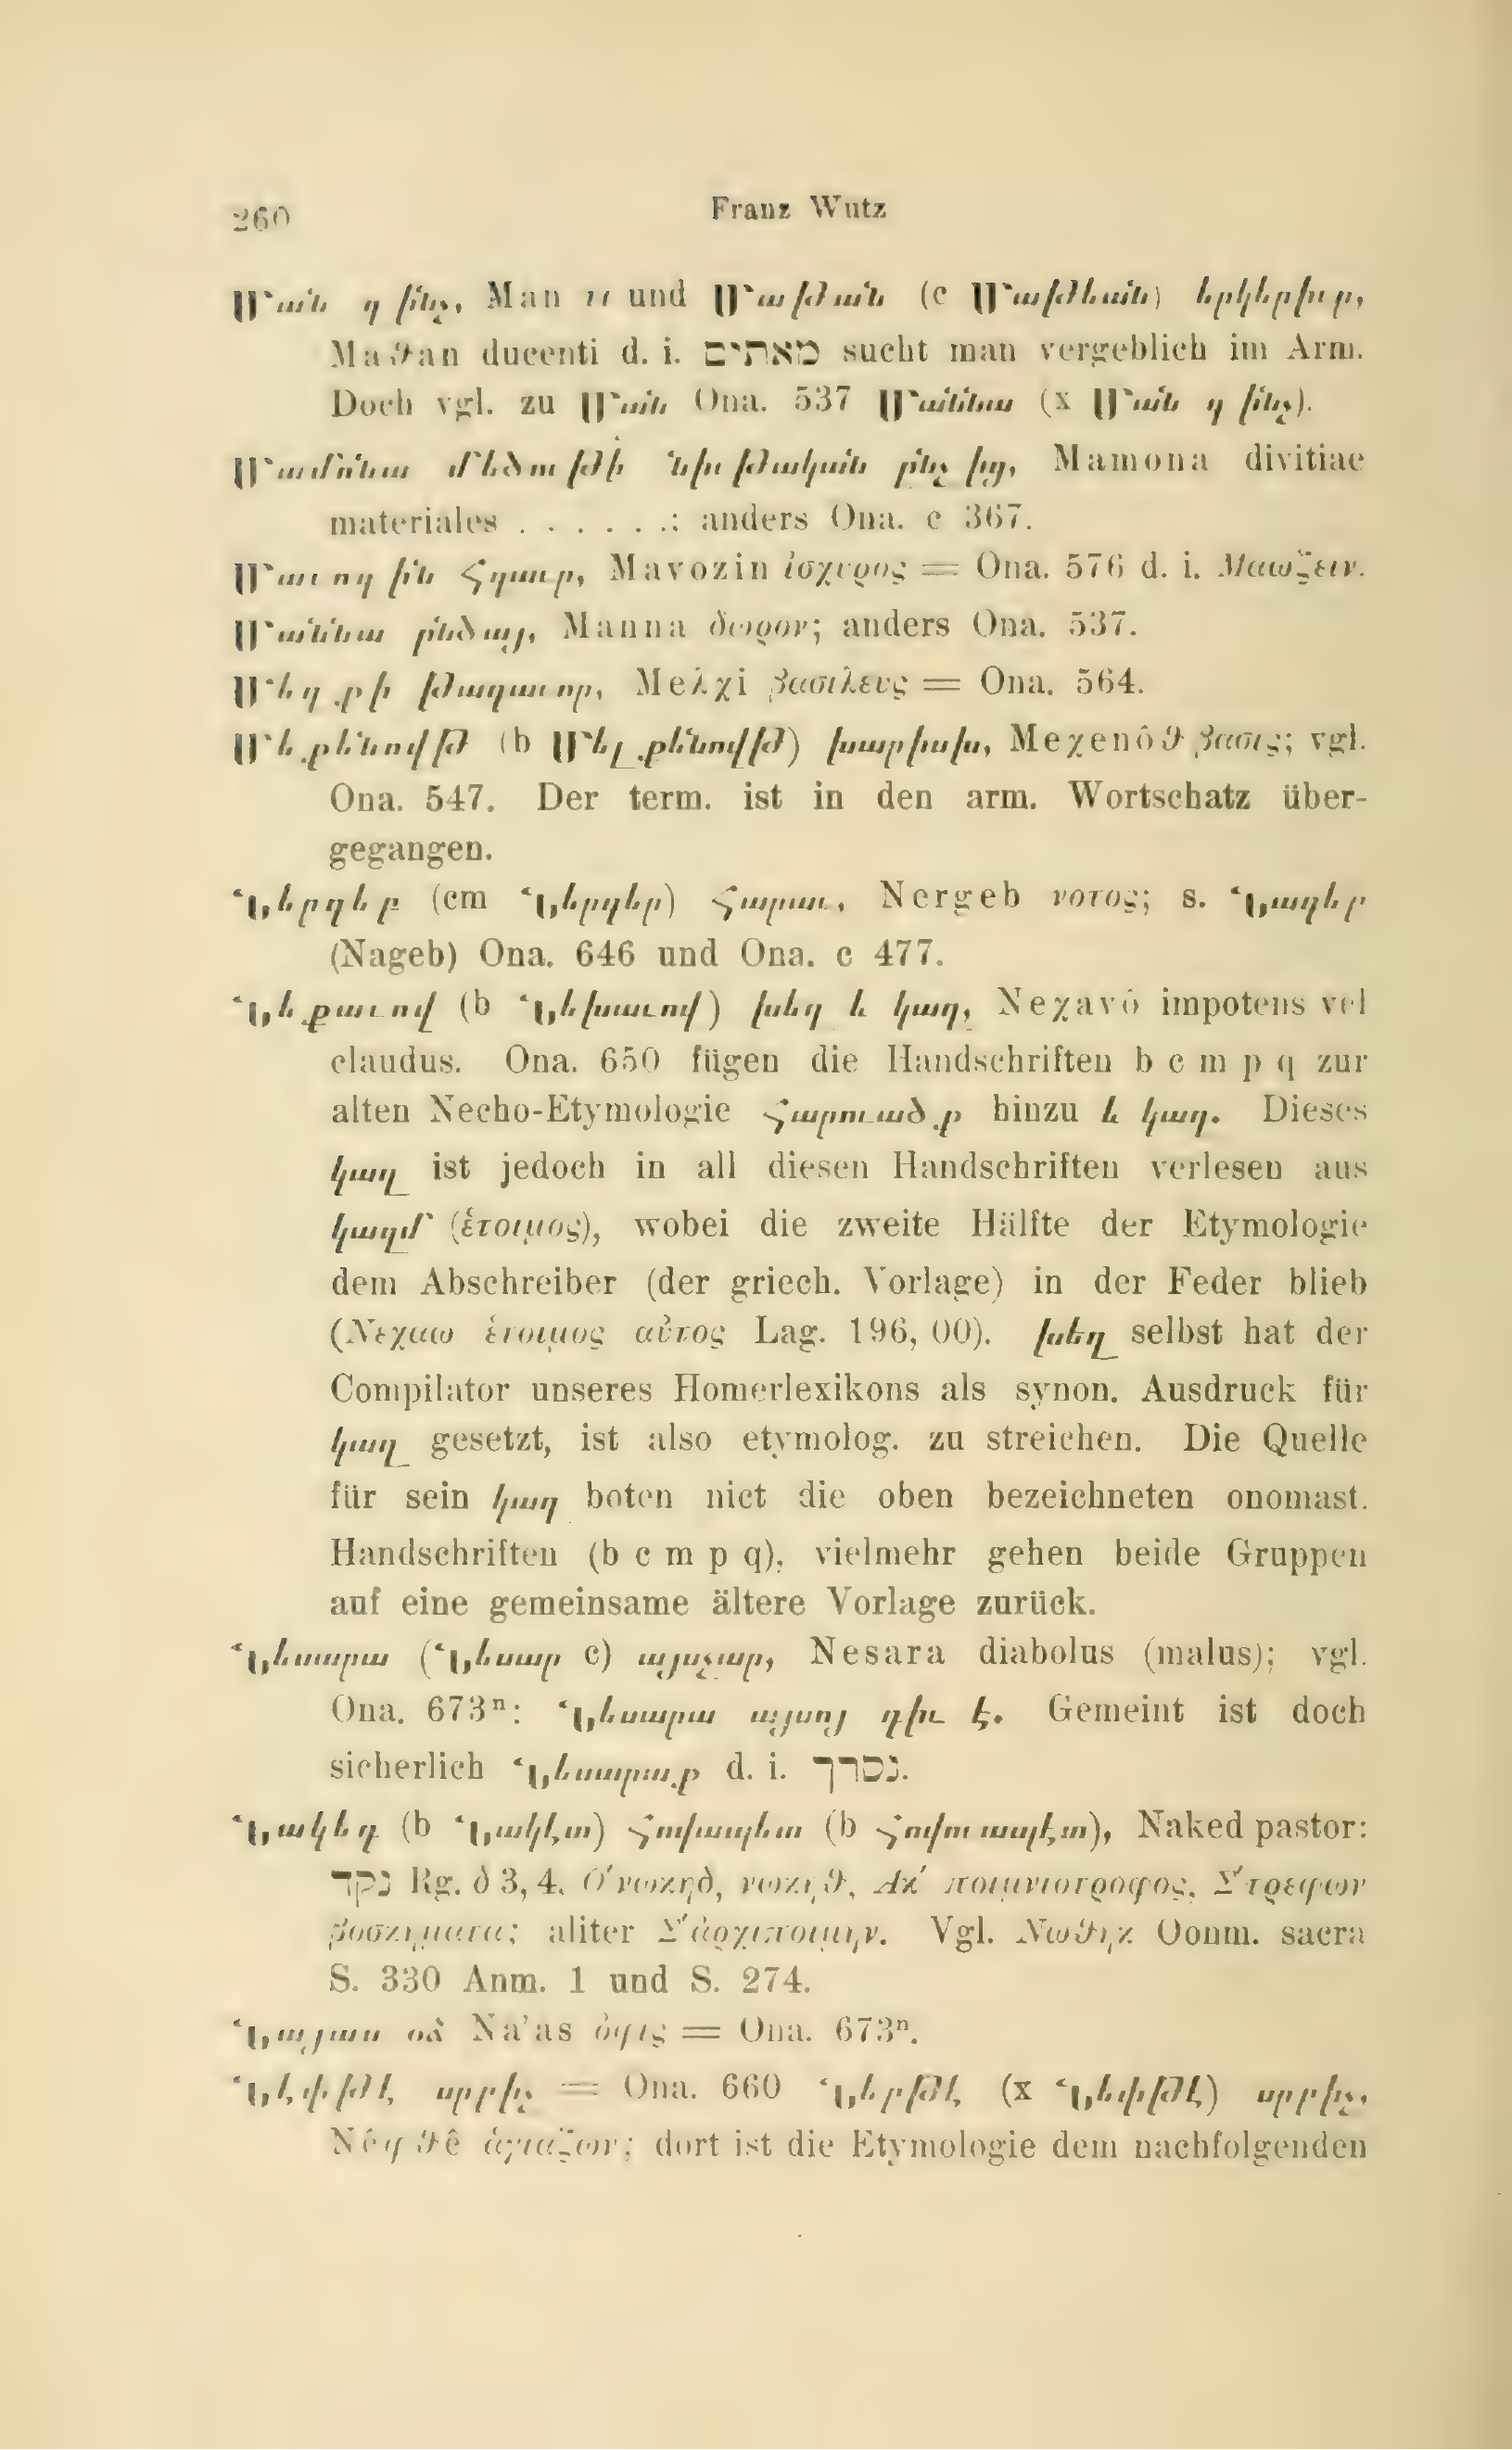 260 Franz Wutz
Ման զ ինչ, Man τι und Մաթան (c Մաթեան) երկերիւր,
Maϑan ducenti d. i. מאתים sucht man vergeblich im Arm.
Doch vgl. zu Ման Ona. 537 Մաննա (x Ման զ ինչ).
Մամոնա մեծութի նիւթական ընչից, Mamona divitiae
materiales . . . . . .: anders Ona. c 367.
Մաւոզին հզաւր, Mavozin ἰσχυρος = Ona. 576 d. i. Μαωζειν.
Մաննա ընծայ, Manna δωρον; anders Ona. 537.
Մեղքի թագաւոր, Meλχi βασιλευς = Ona. 564.
Մեքենովթ (b Մելքենովթ) խարիսխ, Meχenôϑ βασις; vgl.
Ona. 547. Der term. ist in den arm. Wortschatz über-
gegangen.
Ներգեբ (cm Ներգեր) հարաւ, Nergeb νοτος; s. Նագեբ
(Nageb) Ona. 646 und Ona. c 477.
Նեքաւով (b Նեխաւով) խեղ և կաղ, Neχavô impotens vel
claudus. Ona. 650 fügen die Handschriften b c m p q zur
alten Necho-Etymologie հարուածք hinzu և կաղ. Dieses
կաղ ist jedoch in all diesen Handschriften verlesen aus
կազմ (ἑτοιμος), wobei die zweite Hälfte der Etymologie
dem Abschreiber (der griech. Vorlage) in der Feder blieb
(Νεχαω ἑτοιμος αὐτος Lag. 196, 00). խեղ selbst hat der
Compilator unseres Homerlexikons als synon. Ausdruck für
կաղ gesetzt, ist also etymolog. zu streichen. Die Quelle
für sein կաղ boten nict die oben bezeichneten onomast.
Handschriften (b c m p q), vielmehr gehen beide Gruppen
auf eine gemeinsame ältere Vorlage zurück.
Նեսարա (Նեսար c) այսչար, Nesara diabolus (malus); vgl.
Ona. 673ⁿ: Նեսարա այսոյ դիւ է. Gemeint ist doch
sicherlich Նեսարաք d. i. נסרך.
Նակեդ (b Նակէտ) հովապետ (b հովուապէտ), Naked pastor:
נקד Rg. δ 3, 4. Ο′ νωκηδ, νωκηϑ, Ακ′ ποιμνιοτροφος, Σ′ τρεφων
βοσκηματα; aliter Σ′ ἀρχιποιμην. Vgl. Νωϑηκ Oonm. sacra
S. 330 Anm. 1 und S. 274.
Նայաս օձ Na'as ὀφις = Ona. 673ⁿ.
Նէփթէ սրբիչ = Ona. 660 Ներթէ (x Նեփթէ) սրբիչ,
Nêφϑê ἁγιαζων; dort ist die Etymologie dem nachfolgenden